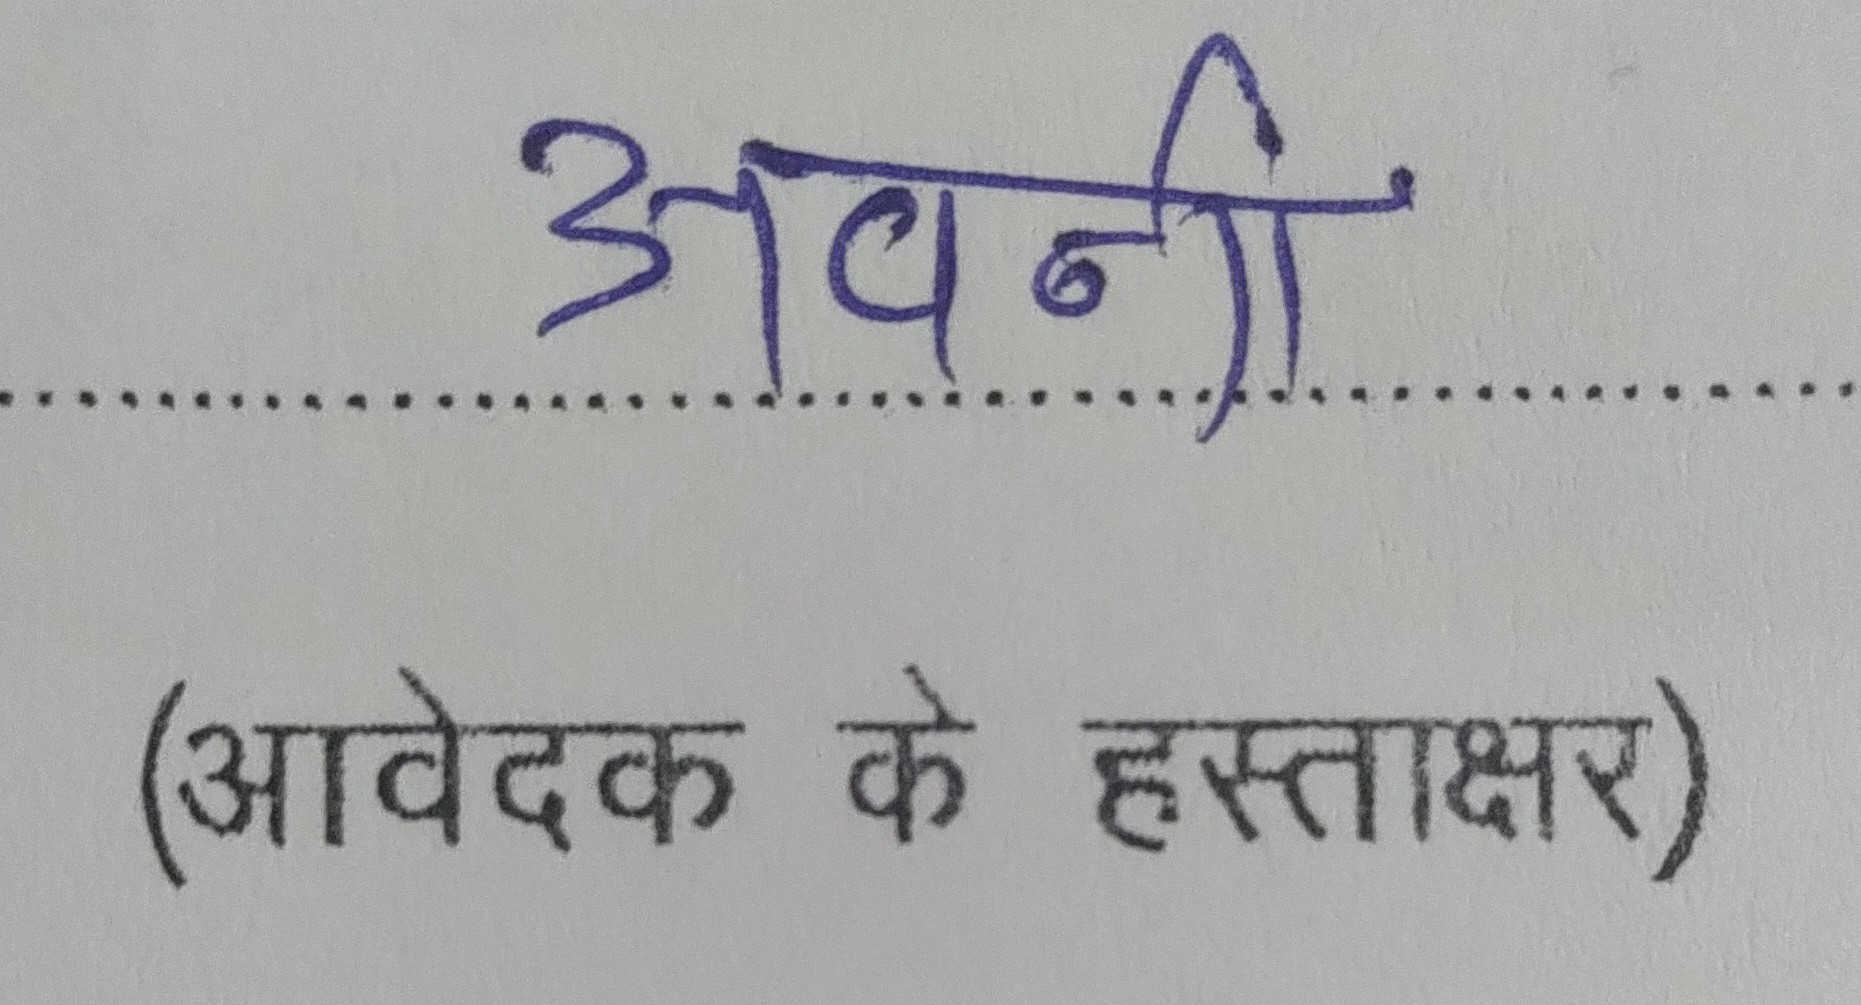 अवनी
(आवेदक के हस्ताक्षर)